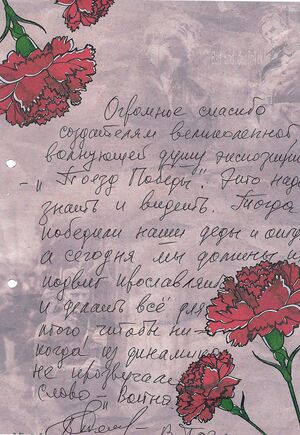 Огромное спасибо
создателям великолепной
волнующей душу экспозиции
- "Поезд Победы". Это надо
знать и видеть. Тогда
победили наши деды и отцы
а сегодня мы должны их
подвиг прославлять
и делать всё для
того, чтобы ни-
когда из динамиков
не прозвучало
слово - "Война